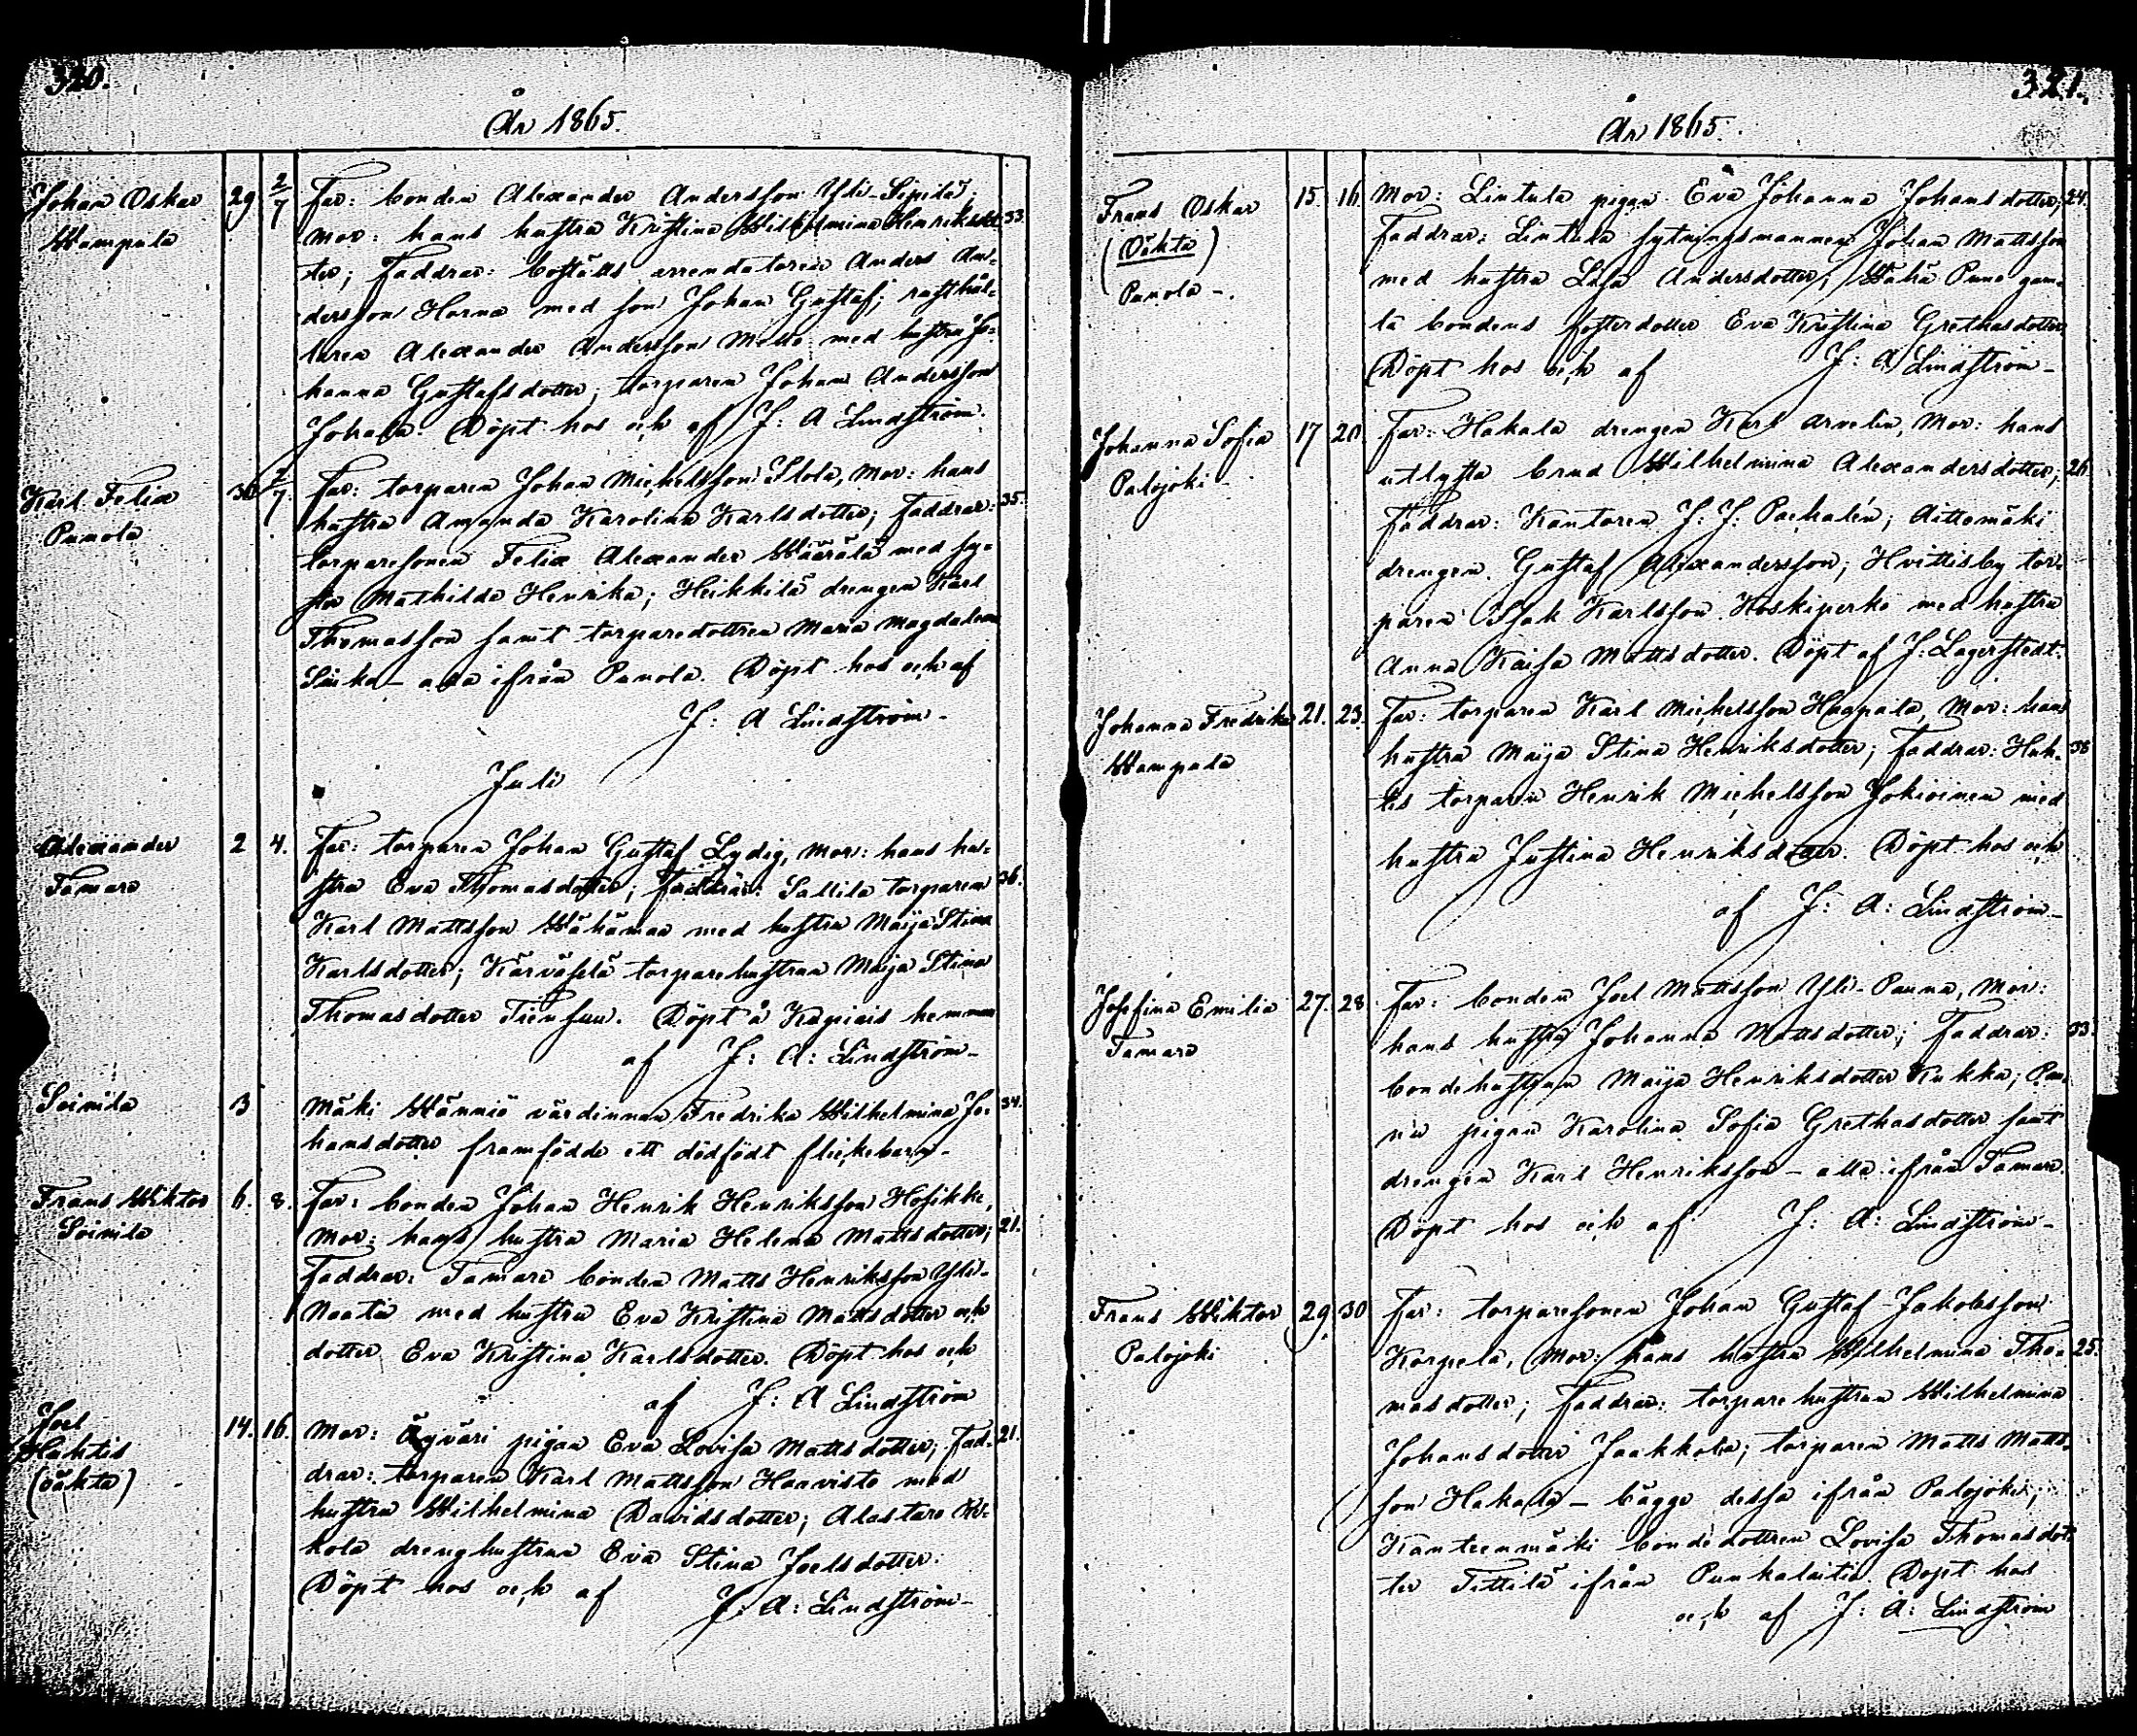 320.
År 1865.
Johan Oskar 29 2/7 Far: bonden Alexander Andersson Yli-Sipilä;
Wampula mor: hans hustru Kristina Wilhelmina Henriksdot- 33.
ter; Faddrar: boställs arrendatorn Anders An-
dersson Horna med son Johan Gustaf; rusthål-
laren Alexander Andersson Mello med hustru Jo-
hanna Gustafsdotter; torparen Johan Andersson
Johala. Döpt hos och af J: A Lindström.
Karl Felix 30 2/7. Far: torparen Johan Michelsson Stola, Mor: hans
Punola hustru Amanda Karolina Karlsdotter; Faddrar: 35.
torparesonen Felix Alexander Määrälä med sy-
ster Mathilda Henrika; Heikkilä drengen Karl
Thomasson samt torparedottren Maria Magdalena
Suka - alla ifrån Punola. Döpt hos och af
J: A Lindström.
Juli
Alexander 2 4. Far: torparen Johan Gustaf Lydig, Mor: hans hu-
Tamare stru Eva Thomasdotter; Faddrar: Sallila torparen 36.
Karl Mattsson Wähämaa med hustru Maija Stina
Karlsdotter; Kärväselä torparehustrun Maija Stina
Thomasdotter Tiensuu. Döpt å Kupiais hemman
af J: A: Lindström-
Soinila 3 Mäki Wänniö värdinnan Fredrika Wilhelmina Jo- 34.
hansdotter framfödde ett dödfödt flickebarn.
Frans Wiktor 6. 8. Far: bonden Johan Henrik Henriksson Hosikka,
Soinila Mor: hans hustru Maria Helena Mattsdotter; 21.
Faddrar: Tamare bonden Matts Henriksson Yli-
Naatu med hustru Eva Kristina Mattsdotter och
dotter Eva Kristina Karlsdotter. Döpt hos och
af J: A Lindström
Joel 14. 16. Mor: Äyväri pigan Eva Lovisa Mattsdotter; Fad- 21.
Huhtis drar: torparen Karl Mattsson Haavisto med
(oäkta) hustru Wilhelmina Davidsdotter; Alastaro
kola drenghustrun Eva Stina Joelsdotter.
Döpt hos och af J: A: Lindström-
321.
År 1865.
Frans Oskar 15. 16. Mor: Lintula pigan Eva Johanna Johansdotter; 24.
(Oäkta) Faddrar: Lintula sytningsmannen Johan Mattsson
Punola -. med hustru Lisa Andersdotter; Wähä Puno gam-
la bondens fosterdotter Eva Kristina Grethasdotter
Döpt hos och af J: A Lindström-
Johanna Sofia 17 20. Far: Hakala drengen Karl Arvelin, Mor: hans
Palojoki utlysta brud Wilhelmina Alexandersdotter; 26.
Faddrar: Kantoren J: J: Pachalén; Aittomäki
drengen Gustaf Alexandersson; Hvittisby tor-
paren Isak Karlsson Koskiperko med hustru
Anna Kaisa Mattsdotter. Döpt af J: Lagerstedt.
Johanna Fredrika 21. 23. Far: torparen Karl Michelsson Haapala, Mor: hans
Wampula hustru Maija Stina Henriksdotter; Faddrar: Huh- 38
tis torparen Henrik Michelsson Jokioinen med
hustru Justina Henriksdotter. Döpt hos och
af J: A: Lindström-
Josefina Emilia 27. 28 Far: bonden Joel Mattsson Yli-Panna, Mor:
Tamare hans hustru Johanna Mattsdotter; Faddrar: 33.
bondehustrun Maija Henriksdotter Kukka; Pan-
nu pigan Karolina Sofia Grethasdotter samt
drengen Karl Henriksson - alla ifrån Tamare.
Döpt hos och af J: A: Lindström-
Frans Wiktor 29. 30 Far: torparesonen Johan Gustaf Jakobsson
Palojoki Korpela, Mor: hans hustru Wilhelmina Tho- 25.
masdotter; Faddrar: torparehustrun Wilhelmina
Johansdotter Jaakkola; torparen Matts Matts-
son Hakala - bägge dessa ifrån Palojoki;
Kanteenmäki bondedottren Lovisa Thomasdot-
ter Tittilä ifrån Punkalaitio Döpt hos
och af J: A: Lindström